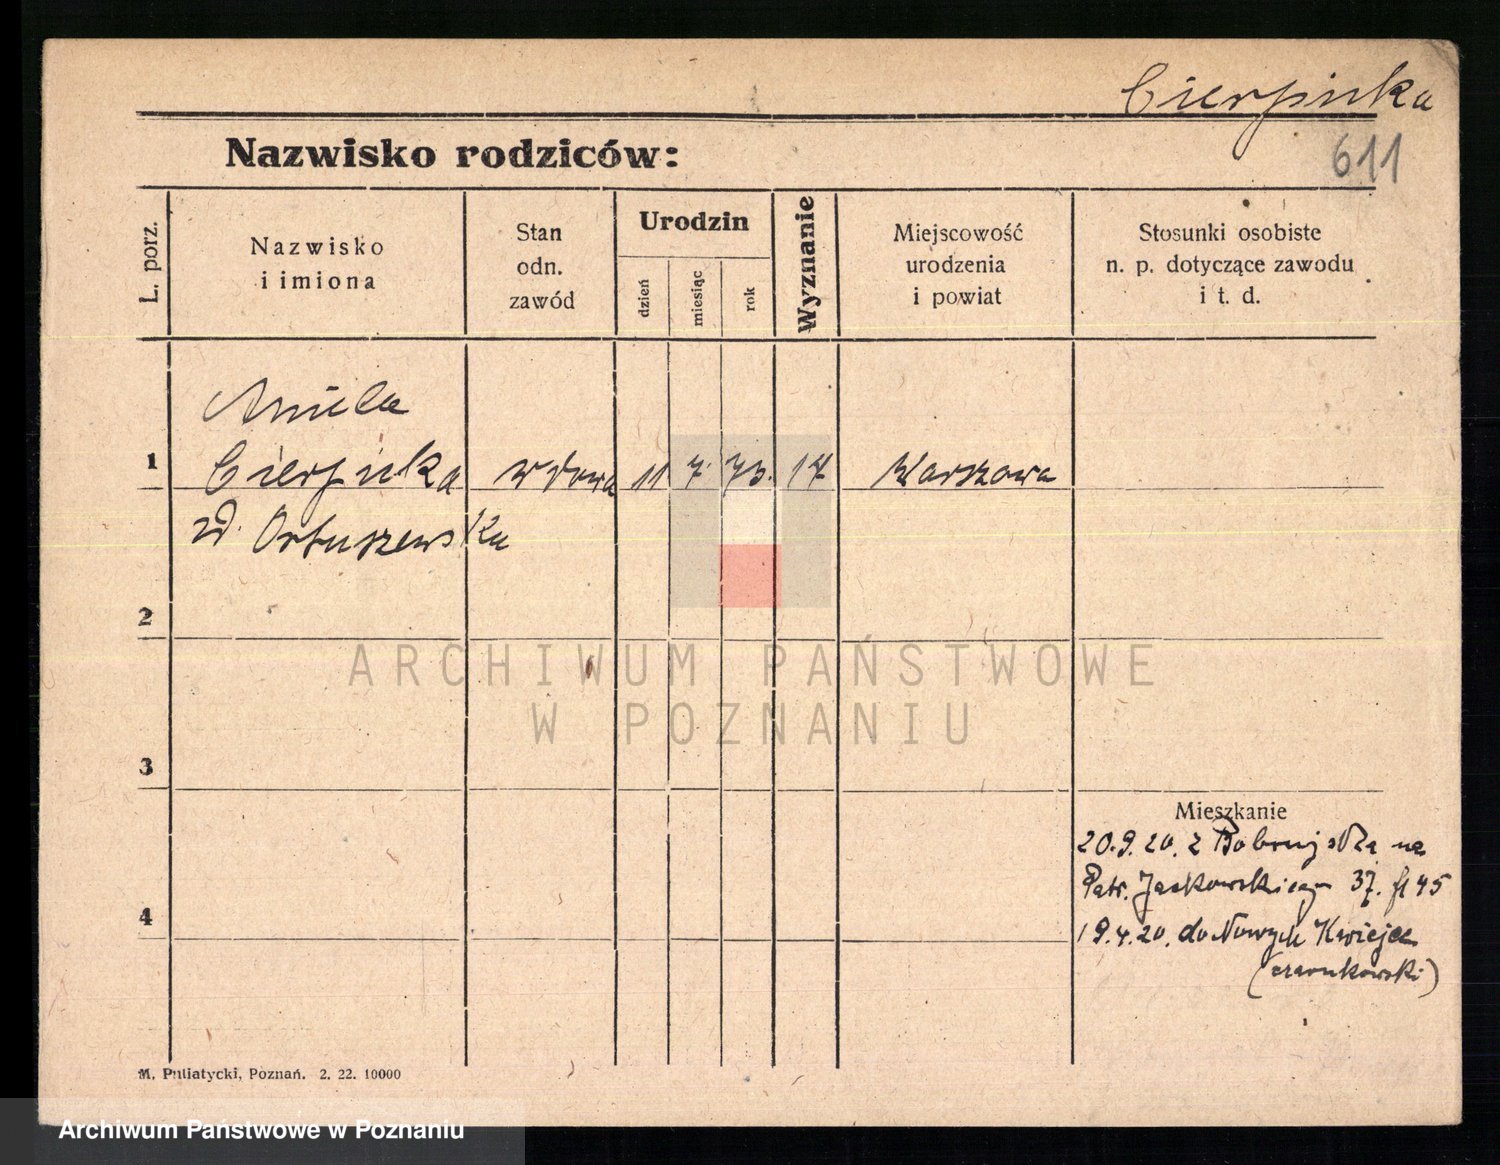 Cierpicka
611
Nazwisko rodziców:
L. porz.
Nazwisko
i imiona
Stan
odn.
zawód
Urodzin
dzień
miesiąc
rok
Wyznanie
Miejscowość
urodzenia
i powiat
Stosunki osobiste
n. p. dotyczące zawodu
i t. d.
Aniela
1 Cierpicka wdowa 11 7. 73. Warszawa
Ortuszewska
2
ARCHIWUM PAŃSTWOWE
W POZNANIU
3
Mieszkanie
20.9.20. z Bobrujska na
Patr. Jackowskiego 37.
4
19.4.20. do Nowych Kwiejce
(czarnkowski)
M. Putiatycki, Poznań. 2. 22. 10000
Archiwum Państwowe w Poznaniu